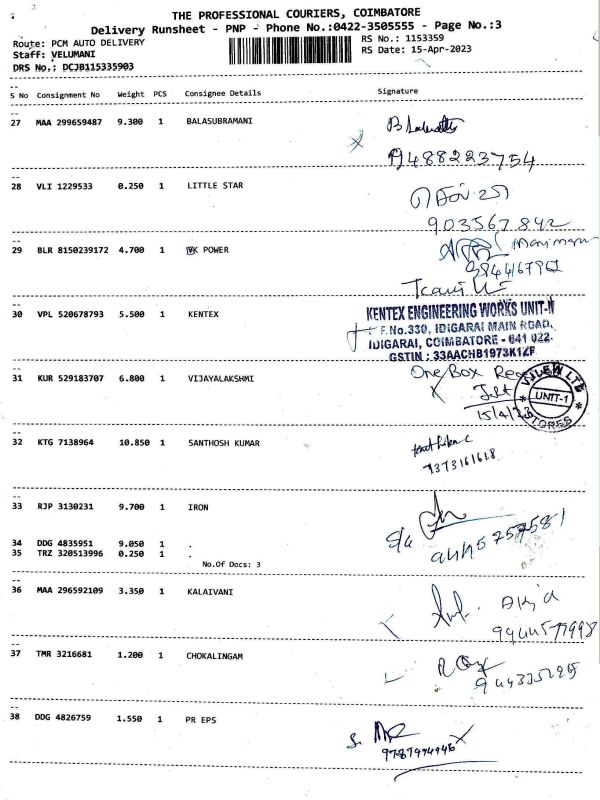 THE PROFESSIONAL COURIERS, COIMBATORE
Delivery Runsheet - PNP - Phone No.:0422-3505555 - Page No.:3
Route: PCM AUTO DELIVERY
RS No.: 1153359
Staff: VELUMANI
RS Date: 15-Apr-2023
DRS No.: DCJB115335903
S No Consignment No Weight PCS Consignee Details Signature
27 MAA 299659487 9.300 1 BALASUBRAMANI
9488223754
28 VLI 1229533 0.250 1 LITTLE STAR
903567842
29 BLR 8150239172 4.700 1 POWER
30 VPL 520678793 5.500 1 KENTEX
KENTEX ENGINEERING WORKS UNIT-II
F.No.339, IDIGARAI MAIN ROAD,
IDIGARAI, COIMBATORE - 641 022.
GSTIN : 33AACHB1973K1ZF
31 KUR 529183707 6.800 1 VIJAYALAKSHMI
One Box
15/4/23
UNIT-1
STORES
32 KTG 7138964 10.850 1 SANTHOSH KUMAR
7373161618
33 RJP 3130231 9.700 1 IRON
34 DDG 4835951 9.050 1 .
35 TRZ 320513996 0.250 1 .
No.Of Docs: 3
36 MAA 296592109 3.350 1 KALAIVANI
37 TMR 3216681 1.200 1 CHOKALINGAM
38 DDG 4826759 1.550 1 PR EPS